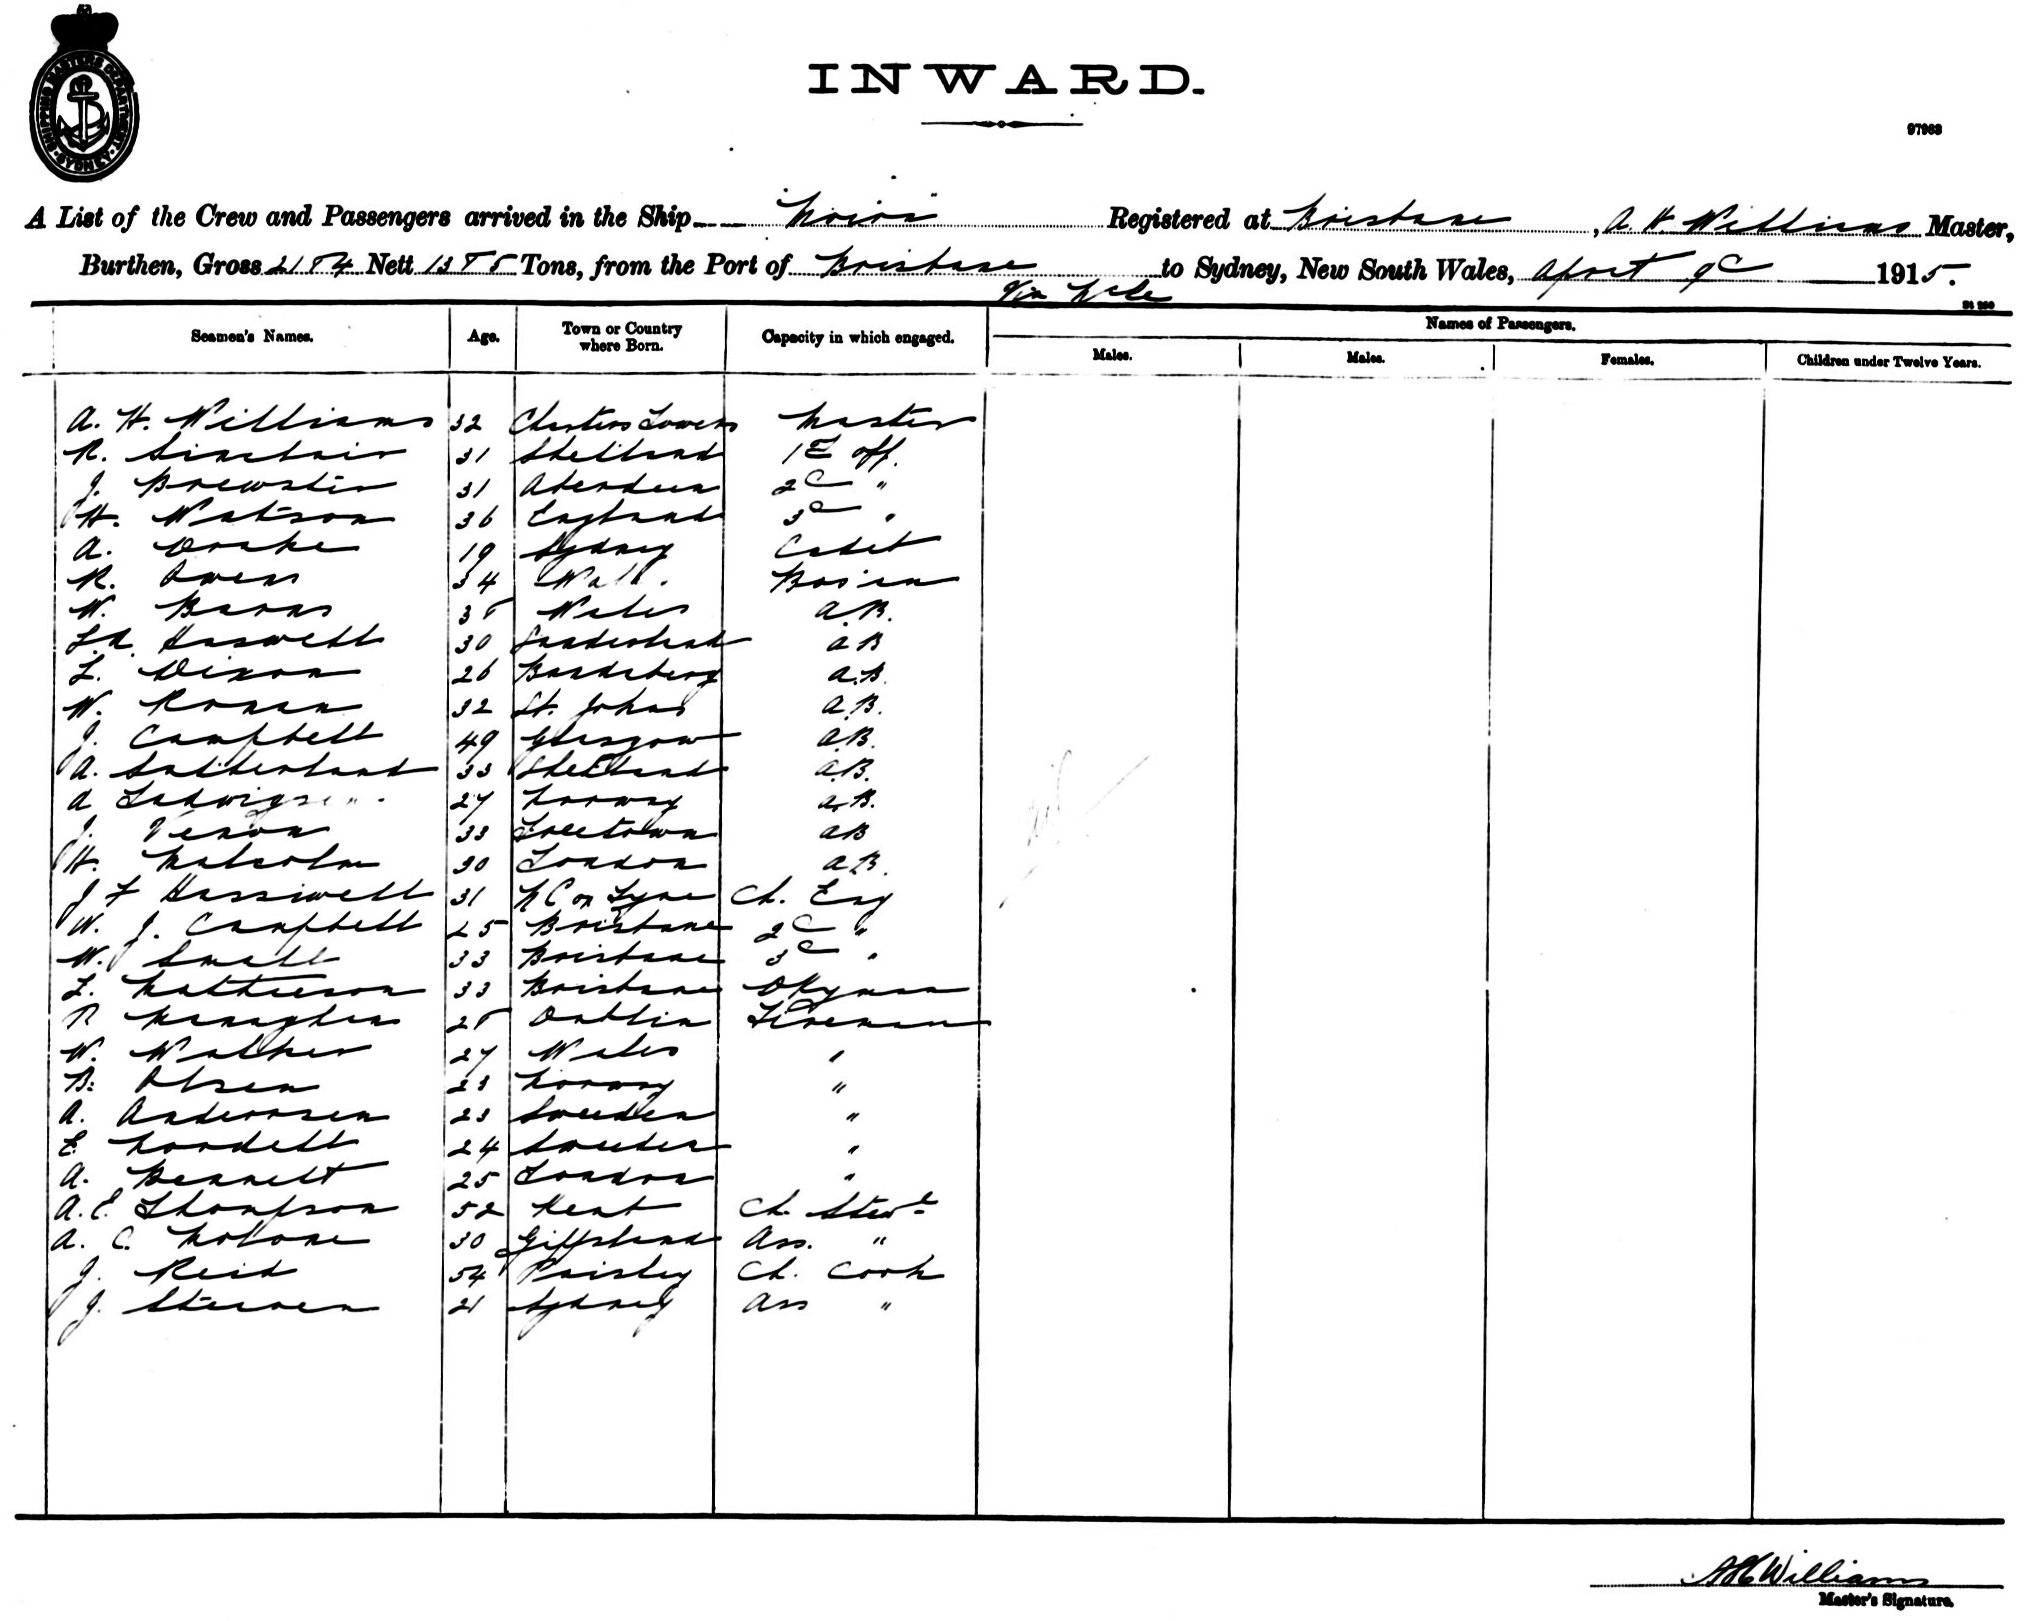 SHIPPING MASTERS DEPARTMENT
SYDNEY
INWARD.
97963
A List of the Crew and Passengers arrived in the Ship "Moira" Registered at Brisbane, A. H. Williams Master,
Burthen, Gross 2184 Nett 1385 Tons, from the Port of Brisbane to Sydney, New South Wales, April 9th 1915.
Via N'cle
Seamen's Names. Age. Town or Country where Born. Capacity in which engaged. Names of Passengers.
Males. Males. Females. Children under Twelve Years.
A. H. Williams 32 Charters Towers Master
R. Sinclair 31 Shetland 1st off.
J. Brewster 31 Aberdeen 2d "
H. Watson 36 England 3d "
A. Drake 19 Sydney Cadet
R. Owens 34 Wales Bos'un
W. Barns 38 Wales A.B.
Haswell 30 Sunderland A.B
L. Dixon 26 Bundaberg A.B.
W. Ronan 32 St. Johns A.B.
J. Campbell 49 Glasgow A.B.
A. Sutherland 33 Shetland A.B.
A Ludwigsen 27 Norway A.B.
J. Venon 33 Freetown AB
H. Malcolm 30 London A.B.
J F Hassiwell 31 N C on Tyne Ch. Eng
W. J. Campbell 25 Brisbane 2d "
W. Small 33 Brisbane 3d "
L. Mathieson 33 Brisbane Dkyman
P Monaghan 28 Dublin Fireman
W. Walker 27 Wales "
B. Olsen 23 Norway "
A. Anderssen 23 Sweden "
E Nordell 24 Sweden "
A. Bennett 25 London "
A. E. Thompson 52 Kent Ch. Stewd
A. C. Molone 30 Gippsland Ass. "
J. Reid 54 Paisley Ch. Cook
J. Steenen 21 Sydney Ass "
AH Williams
Master's Signature.